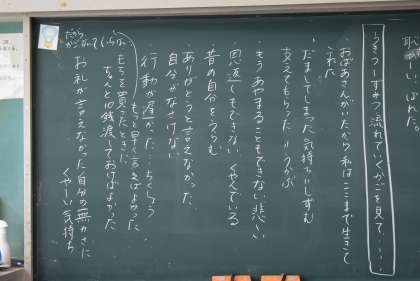 恥
ばれた。
うきつしずみつ流れていくかごを見て‥‥‥
おばあさんがいたから私はここまで生きて
これた
だましてしまった気持ちにしずむ
支えてもらった
もうあやまることもできない 悲しい
恩返しもできない くやんでいる
昔の自分をうらむ
ありがとうと言えなかった
自分がなさけない
行動が遅かった‥‥ちくしょう
もっと早く言えばよかった
もちを買ったときに
ちゃんと10銭渡しておけばよかった
お礼が言えなかった自分の無力さに
くやしい気持ち
だから
かごなって